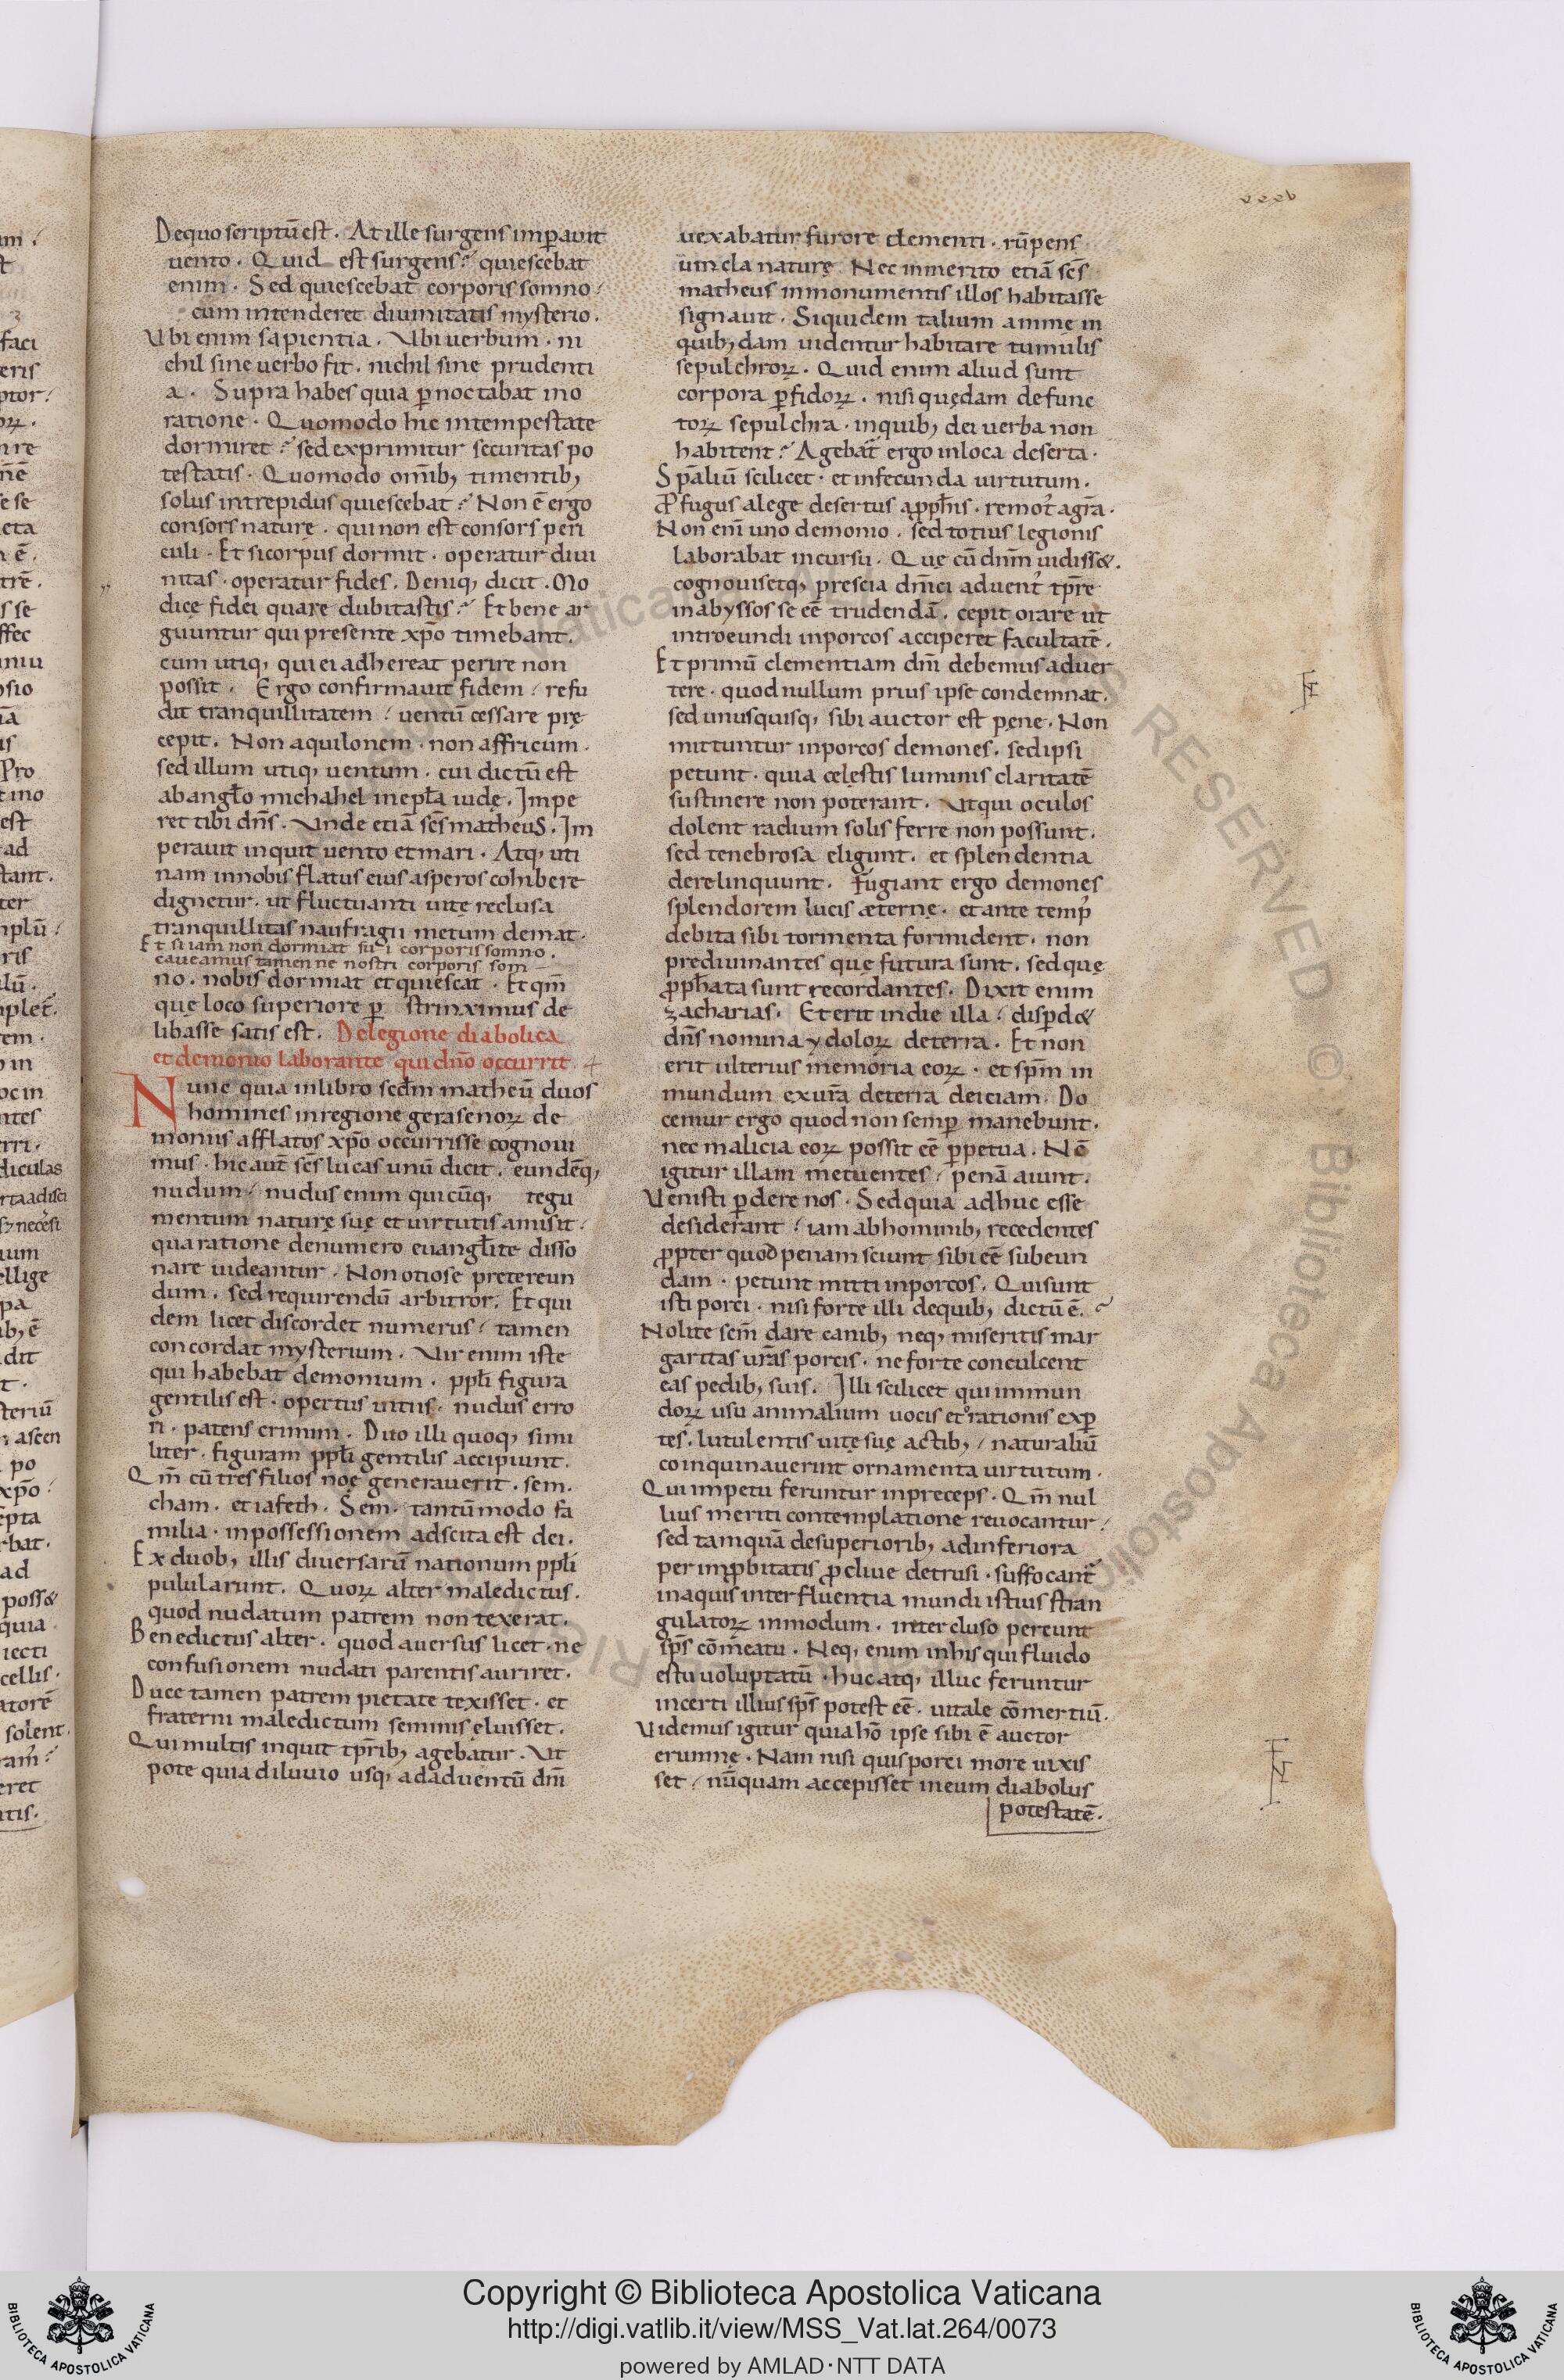 De quo scriptū est. At ille surgens imp̄avit
vento. Quid est surgens? quiescebat
enim. Sed quiescebat corporis somno
cum intenderet divinitatis mysterio.
Ubi enim sapientia. Ubi verbum. ni
chil sine verbo fit. nichil sine prudenti
a. Supra habes quia p̄noctabat in o
ratione. Quomodo hic in tempestate
dormiret? sed exprimitur securitas po
testatis. Quomodo om̄ib; timentib;
solus intrepidus quiescebat? Non ē ergo
consors naturę. qui non est consors peri
culi. Et si corpus dormit. operatur divi
nitas. operatur fides. Deniq; dicit. Mo
dicę fidei quare dubitastis? Et bene ar
guuntur qui presente xp̄o timebant.
cum utiq; qui ei adhereat perire non
possit. Ergo confirmavit fidem. refu
dit tranquillitatem. ventū cessare prę
cepit. Non aquilonem. non affricum.
sed illum utiq; ventum. cui dictū est
ab angl̄o michahel in epl̄a iudę. Impe
ret tibi dn̄s. Unde etiā sc̄s matheus. Im
peravit inquit vento et mari. Atq; uti
nam in nobis flatus eius asperos cohibere
dignetur. ut fluctuanti vitę reclusa
tranquillitas naufragii metum demat.
Et si iam non dormiat sui corporis somno.
caveamus tamen ne nostri corporis som
no. nobis dormiat et quiescat. Et qm̄
quę loco superiore p̄ strinximus de
libasse satis est. De legione diabolica
et demonio laborante qui dn̄o occurrit.
Nunc quia in libro scdm̄ matheū duos
homines in regione gerasenoꝝ de
moniis afflatos xp̄o occurrisse cognovi
mus. hic aut̄ sc̄s lucas unū dicit. eundēq;
nudum. nudus enim quicūq; tegu
mentum naturę suę et virtutis amisit.
qua ratione de numero evangl̄ite disso
nare videantur. Non otiose pretereun
dum. sed requirendū arbitror. Et qui
dem licet discordet numerus. tamen
concordat mysterium. Vir enim iste
qui habebat demonium. ppl̄i figura
gentilis est. opertus vitiis. nudus erro
ri. patens crimini. Duo illi quoq; simi
liter. figuram ppl̄i gentilis accipiunt.
Qm̄ cū tres filios noę generaverit. sem.
cham. et iafeth. Sem. tantūmodo fa
milia. in possessionem adscita est dei.
Ex duob; illis diversarū nationum ppl̄i
pulularunt. Quoꝝ alter maledictus.
quod nudatum patrem non texerat.
Benedictus alter. quod aversus licet. ne
confusionem nudati parentis auriret.
Duce tamen patrem pietate texisset. et
fraterni maledictum seminis ęluisset.
Qui multis inquit tp̄rib; agebatur. Ut
pote quia diluvio usq; ad adventū dm̄i
vexabatur furore dementi. rūpens
vincla naturę. Nec inmerito etiā sc̄s
matheus in monumentis illos habitasse
signavit. Siquidem talium anime in
quib;dam videntur habitare tumulis
sepulchroꝝ. Quid enim aliud sunt
corpora p̄fidoꝝ. nisi quędam defunc
toꝝ sepulchra. in quib; dei verba non
habitent? Agebat̄ ergo in loca deserta.
Sp̄aliū scilicet. et infecunda virtutum.
P̄fugus a lege desertus a pph̄is. remot᾽ a gr̄a.
Non eni᷎ uno demonio. sed totius legionis
laborabat incursu. Quę cū dn̄m vidiss&.
cognovisetq; prescia dm̄ci advent᾽ tp̄re
in abyssos se eē trudendā. cepit orare ut
introeundi in porcos acciperet facultatē.
Et primū clementiam dm̄i debemus adver
tere. quod nullum prius ipse condemnat.
sed unusquisq; sibi auctor est pęne. Non
mittuntur in porcos demones. sed ipsi
petunt. quia cęlęstis luminis claritatē
sustinere non poterant. Ut qui oculos
dolent radium solis ferre non possunt.
sed tenebrosa eligunt. et splendentia
derelinquunt. Fugiant ergo demones
splendorem lucis æternę. et ante temp᾽
debita sibi tormenta formident. non
predivinantes quę futura sunt. sed quę
p̄ph̄ata sunt recordantes. Dixit enim
zacharias. Et erit in die illa. disp̄d&
dn̄s nomina ydoloꝝ de terra. Et non
erit ulterius memoria eoꝝ. et sp̄m in
mundum exurā de terra deiciam. Do
cemur ergo quod non semp̄ manebunt.
nec malicia eoꝝ possit eē p̄petua. Nō
igitur illam metuentes. penā aiunt.
Venisti p̄dere nos. Sed quia adhuc esse
desiderant. iam ab hominib; recedentes
p̄pter quod penam sciunt sibi eē subeun
dam. petunt mitti in porcos. Qui sunt
isti porci. nisi forte illi de quib; dictū ē.
Nolite sc̄m dare canib; neq; miseritis mar
garitas vr̄as porcis. ne forte conculcent
eas pedib; suis. Illi scilicet qui immun
doꝝ usu animalium vocis et rationis exp̄
tes. lutulentis vitę suę actib; naturaliū
coinquinaverint ornamenta virtutum.
Qui impetu feruntur in preceps. Qm̄ nul
lius meriti contemplatione revocantur.
sed tamquā de superiorib; ad inferiora
per imp̄bitatis p̄clive detrusi. suffocant̄
in aquis inter fluentia mundi istius stran
gulatoꝝ in modum. intercluso pereunt
sp̄s cōmeatu. Neq; enim in his qui fluido
estu voluptatū. huc atq; illuc feruntur
incerti illius sp̄s potest eē. vitale cōmertiū.
Videmus igitur quia hō ipse sibi ē auctor
erumnę. Nam nisi quis porci more vixis
set. nūquam accepisset in eum diabolus
potestatē.
Copyright © Biblioteca Apostolica Vaticana
http://digi.vatlib.it/view/MSS_Vat.lat.264/0073
powered by AMLAD·NTT DATA
BIBLIOTECA APOSTOLICA VATICANA
BIBLIOTECA APOSTOLICA VATICANA